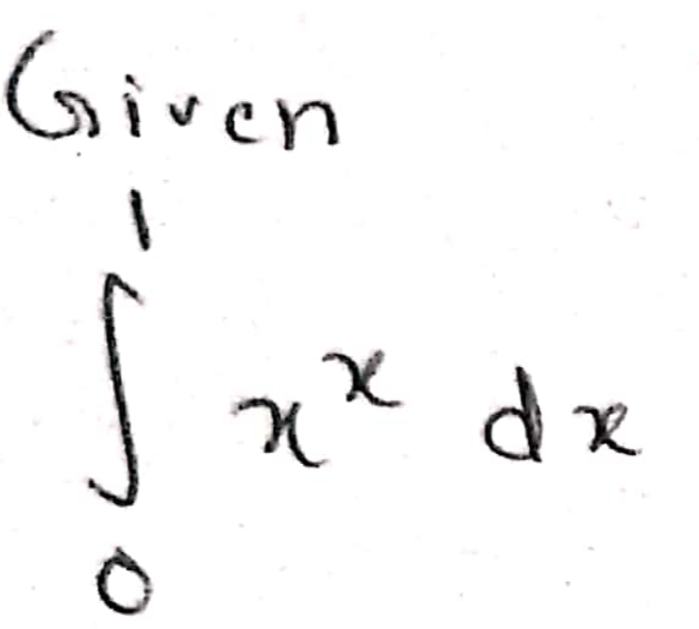 Given
1
∫ x^x dx
0